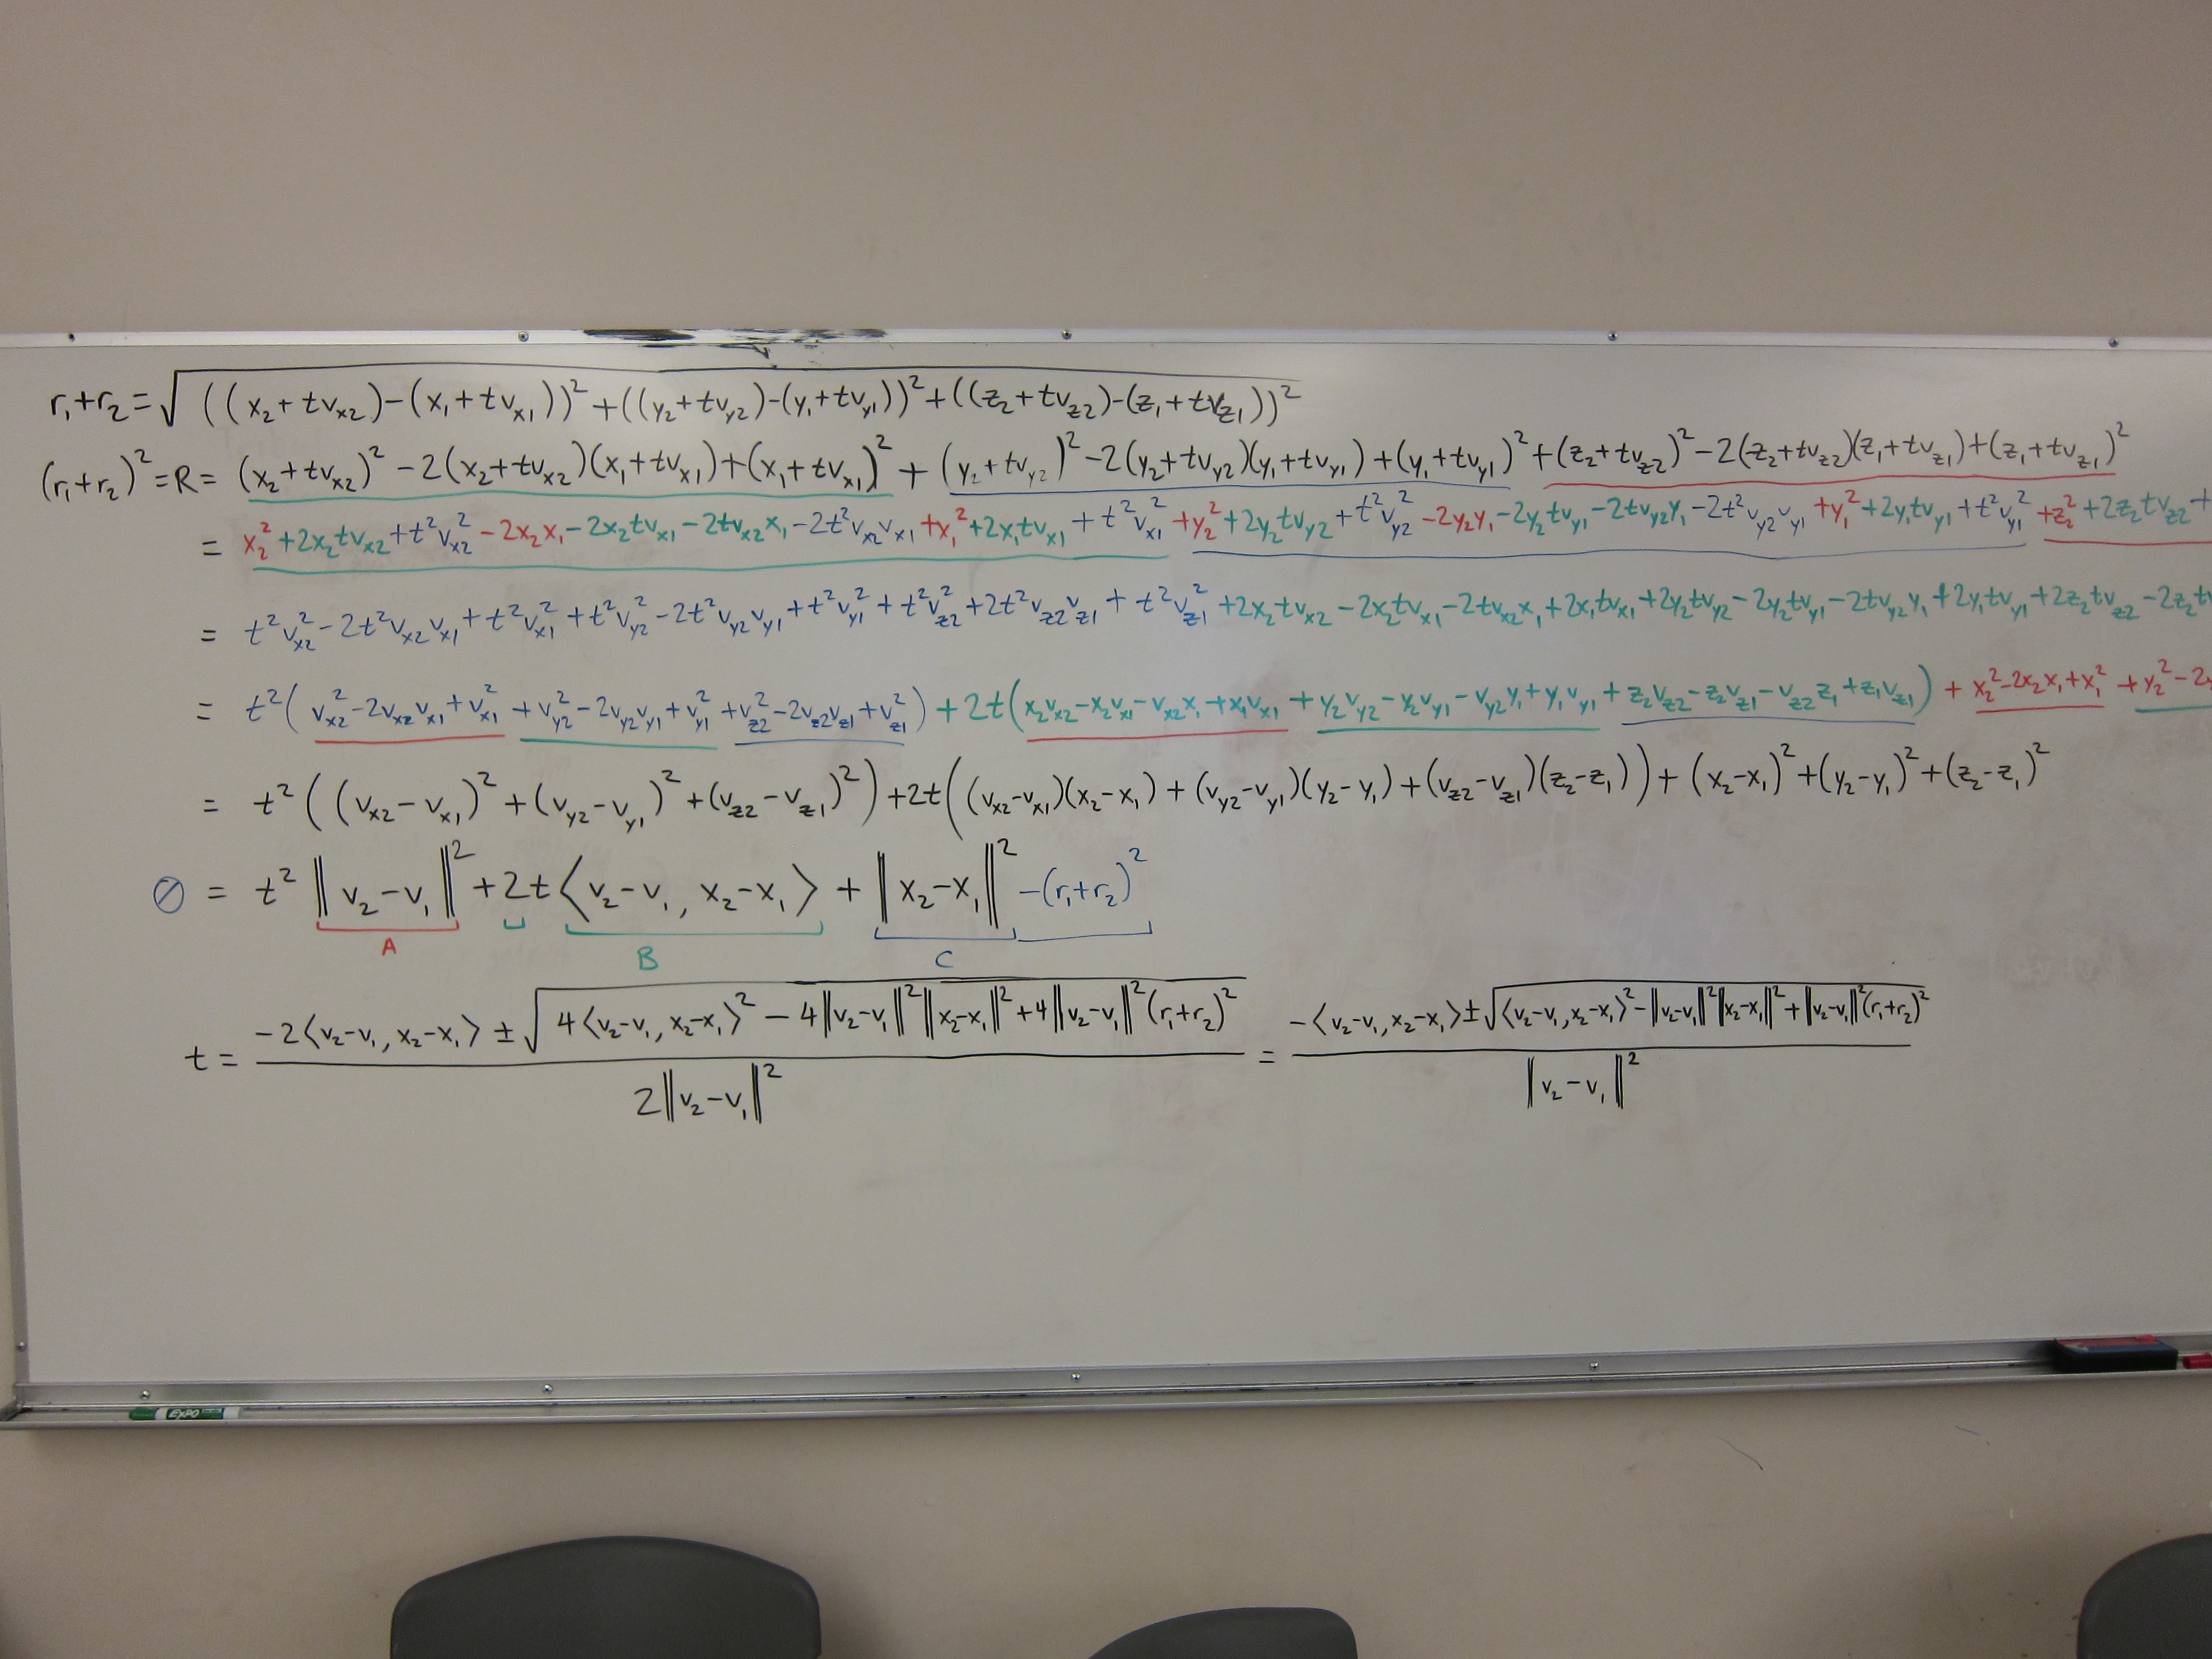 r₁+r₂=√((x₂+tvₓ₂)-(x₁+tvₓ₁))²+((y₂+tv_y2)-(y₁+tv_y1))²+((z₂+tv_z2)-(z₁+tv_z1))²
(r₁+r₂)²=R= (x₂+tvₓ₂)²-2(x₂+tvₓ₂)(x₁+tvₓ₁)+(x₁+tvₓ₁)²+(y₂+tv_y2)²-2(y₂+tv_y2)(y₁+tv_y1)+(y₁+tv_y1)²+(z₂+tv_z2)²-2(z₂+tv_z2)(z₁+tv_z1)+(z₁+tv_z1)²
= x₂²+2x₂tvₓ₂+t²vₓ₂²-2x₂x₁-2x₂tvₓ₁-2tvₓ₂x₁-2t²vₓ₂vₓ₁+x₁²+2x₁tvₓ₁+t²vₓ₁²+y₂²+2y₂tv_y2+t²v_y2²-2y₂y₁-2y₂tv_y1-2tv_y2y₁-2t²v_y2v_y1+y₁²+2y₁tv_y1+t²v_y1²+z₂²+2z₂tv_z2+
= t²vₓ₂²-2t²vₓ₂vₓ₁+t²vₓ₁²+t²v_y2²-2t²v_y2v_y1+t²v_y1²+t²v_z2²+2t²v_z2v_z1+t²v_z1²+2x₂tvₓ₂-2x₂tvₓ₁-2tvₓ₂x₁+2x₁tvₓ₁+2y₂tv_y2-2y₂tv_y1-2tv_y2y₁+2y₁tv_y1+2z₂tv_z2-2z₂tv
= t²(vₓ₂²-2vₓ₂vₓ₁+vₓ₁²+v_y2²-2v_y2v_y1+v_y1²+v_z2²-2v_z2v_z1+v_z1²)+2t(x₂vₓ₂-x₂vₓ₁-vₓ₂x₁+x₁vₓ₁+y₂v_y2-y₂v_y1-v_y2y₁+y₁v_y1+z₂v_z2-z₂v_z1-v_z2z₁+z₁v_z1)+x₂²-2x₂x₁+x₁²+y₂²-2
= t²((vₓ₂-vₓ₁)²+(v_y2-v_y1)²+(v_z2-v_z1)²)+2t((vₓ₂-vₓ₁)(x₂-x₁)+(v_y2-v_y1)(y₂-y₁)+(v_z2-v_z1)(z₂-z₁))+(x₂-x₁)²+(y₂-y₁)²+(z₂-z₁)²
0 = t²‖v₂-v₁‖²+2t⟨v₂-v₁, x₂-x₁⟩+‖x₂-x₁‖²-(r₁+r₂)²
A B C
t = (-2⟨v₂-v₁, x₂-x₁⟩±√4⟨v₂-v₁, x₂-x₁⟩²-4‖v₂-v₁‖²‖x₂-x₁‖²+4‖v₂-v₁‖²(r₁+r₂)²)/2‖v₂-v₁‖² = (-⟨v₂-v₁, x₂-x₁⟩±√⟨v₂-v₁, x₂-x₁⟩²-‖v₂-v₁‖²‖x₂-x₁‖²+‖v₂-v₁‖²(r₁+r₂)²)/‖v₂-v₁‖²
EXPO